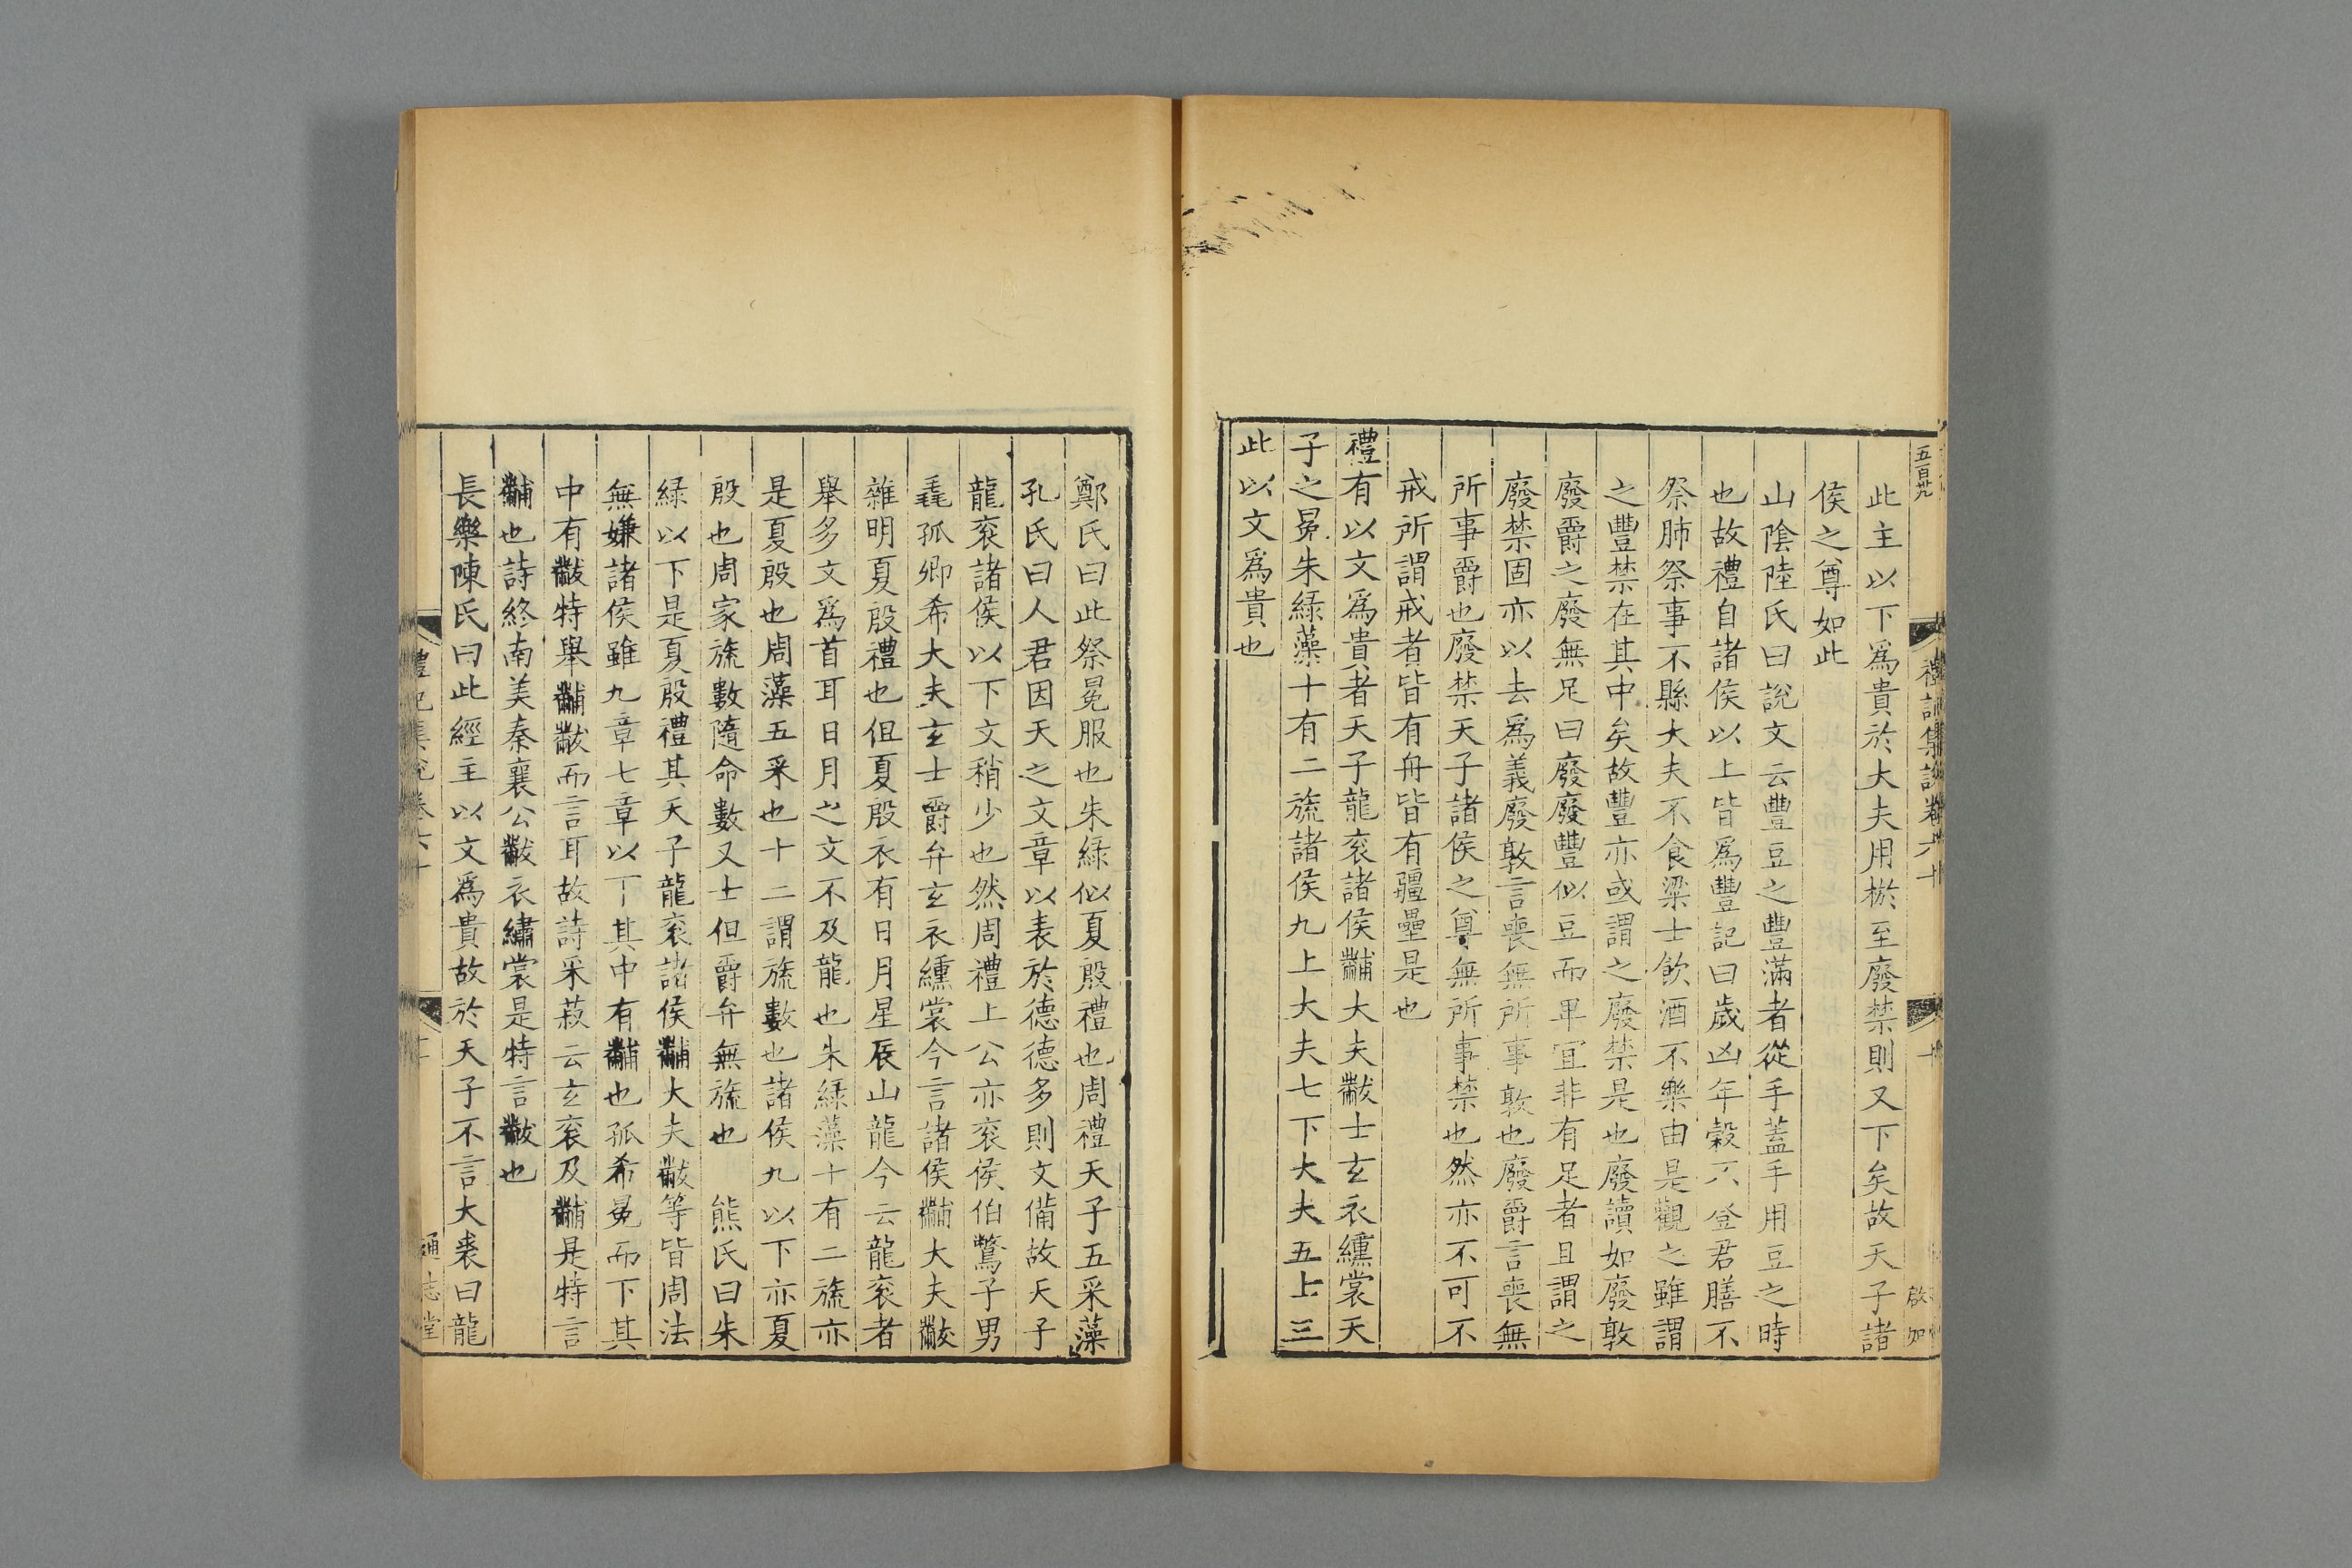 五百卅
禮記集說卷六十
啟如
此主以下爲貴於大夫用棜至廢禁則又下矣故天子諸
侯之尊如此
山陰陸氏曰說文云豐豆之豐滿者從手蓋手用豆之時
也故禮自諸侯以上皆爲豐記曰歲凶年穀不登君膳不
祭肺祭事不縣大夫不食粱士飲酒不樂由是觀之雖謂
之豐禁在其中矣故豐亦或謂之廢禁是也廢讀如廢敦
廢爵之廢無足曰廢廢豐似豆而卑冝非有足者且謂之
廢禁固亦以去爲義廢敦言喪無所事敦也廢爵言喪無
所事爵也廢禁天子諸侯之尊無所事禁也然亦不可不
戒所謂戒者皆有舟皆有疆壘是也
禮有以文爲貴者天子龍衮諸侯黼大夫黻士玄衣纁裳天
子之冕朱緑藻十有二旒諸侯九上大夫七下大夫五士三
此以文爲貴也
鄭氏曰此祭冕服也朱緑似夏殷禮也周禮天子五采藻
孔氏曰人君因天之文章以表於德德多則文備故天子
龍衮諸侯以下文稍少也然周禮上公亦衮侯伯鷩子男
毳孤卿希大夫玄士爵弁玄衣纁裳今言諸侯黼大夫黻
雜明夏殷禮也但夏殷衣有日月星辰山龍今云龍衮者
舉多文爲首耳日月之文不及龍也朱緑藻十有二旒亦
是夏殷也周藻五采也十二謂旒數也諸侯九以下亦夏
殷也周家旒數隨命數又士但爵弁無旒也　熊氏曰朱
緑以下是夏殷禮其天子龍衮諸侯黼大夫黻等皆周法
無嫌諸侯雖九章七章以下其中有黼也孤希冕而下其
中有黻特舉黼黻而言耳故詩采菽云玄衮及黼是特言
黼也詩終南美秦襄公黻衣繡裳是特言黻也
長樂陳氏曰此經主以文爲貴故於天子不言大裘曰龍
禮記集說卷六十
通志堂